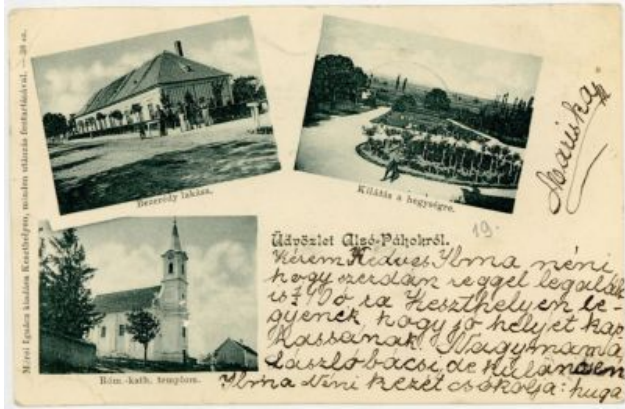 Mérei Ignácz kiadása Keszthelyen, minden utánzás fentartásával. — 38 sz.
Bezerédy lakása.
Kilátás a hegységre.
Róm.-kath. templom.
Mariska
19.
Üdvözlet Alsó-Páhokról.
Kérem Kedves Ilma néni
hogy szerdán reggel legalább
is 10 óra Keszthelyen le-
gyenek hogy jó helyet kap
hassanak. Nagymama
László bácsi, de különösen
Ilma néni kezét csókolja: huga